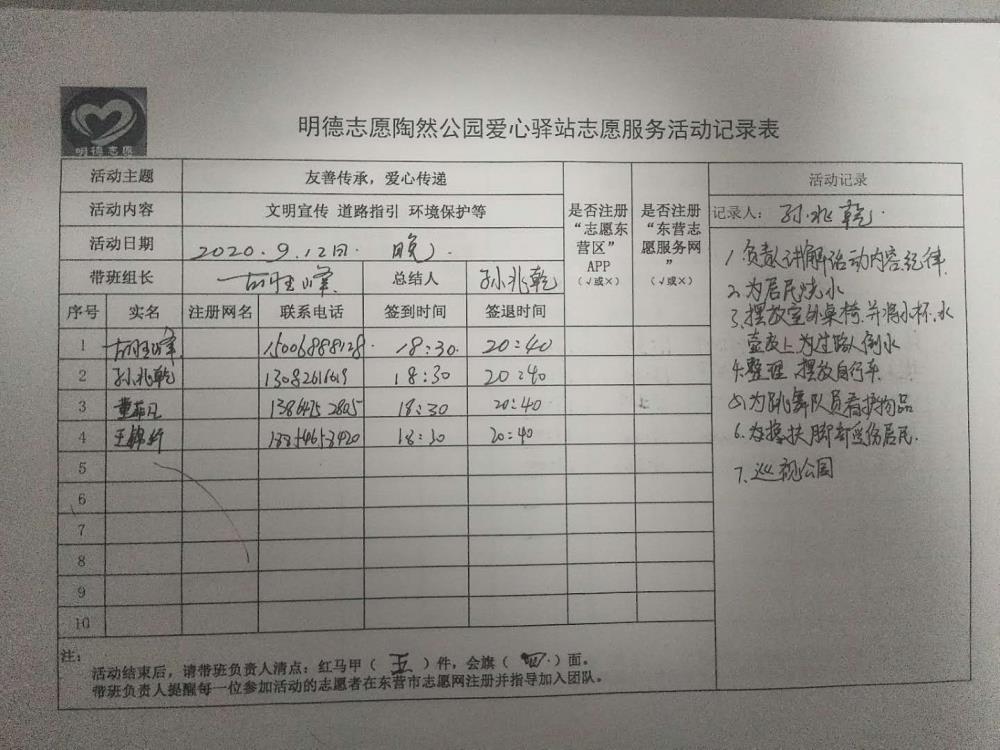 明德志愿
明德志愿陶然公园爱心驿站志愿服务活动记录表
活动主题 友善传承，爱心传递
活动内容 文明宣传 道路指引 环境保护等
活动日期 2020.9.12日. 晚.
带班组长 总结人 孙兆乾
是否注册“志愿东营区”APP（√或×）
是否注册“东营志愿服务网”（√或×）
序号 实名 注册网名 联系电话 签到时间 签退时间
1 15006888128 18:30 20:40
2 孙兆乾 13082611619 18:30 20:40
3 18:30 20:40
4 18:30 20:40
5
6
7
8
9
10
活动记录
记录人：孙兆乾.
1.负责讲解活动内容纪律
2.为居民烧水
3.摆放室外桌椅.并将水杯.水
壶放上.为过路人倒水
4.整理.摆放自行车.
5.为跳舞队员看护物品
6.为搀扶脚部受伤居民.
7.巡视公园
注：
活动结束后，请带班负责人清点：红马甲（五）件，会旗（四）面。
带班负责人提醒每一位参加活动的志愿者在东营市志愿网注册并指导加入团队。